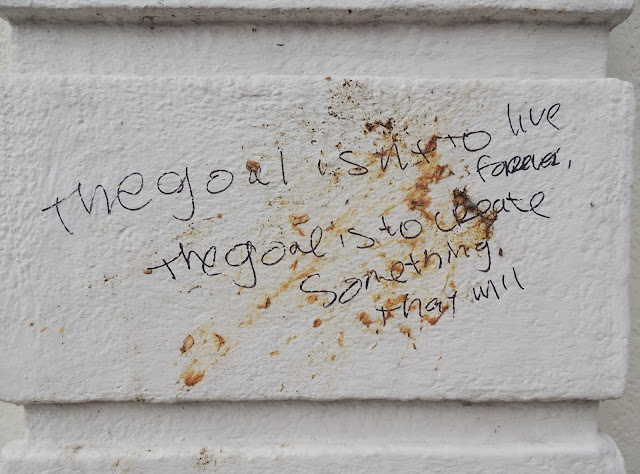 the goal isn't to live
forever,
the goal is to create
Something
that will